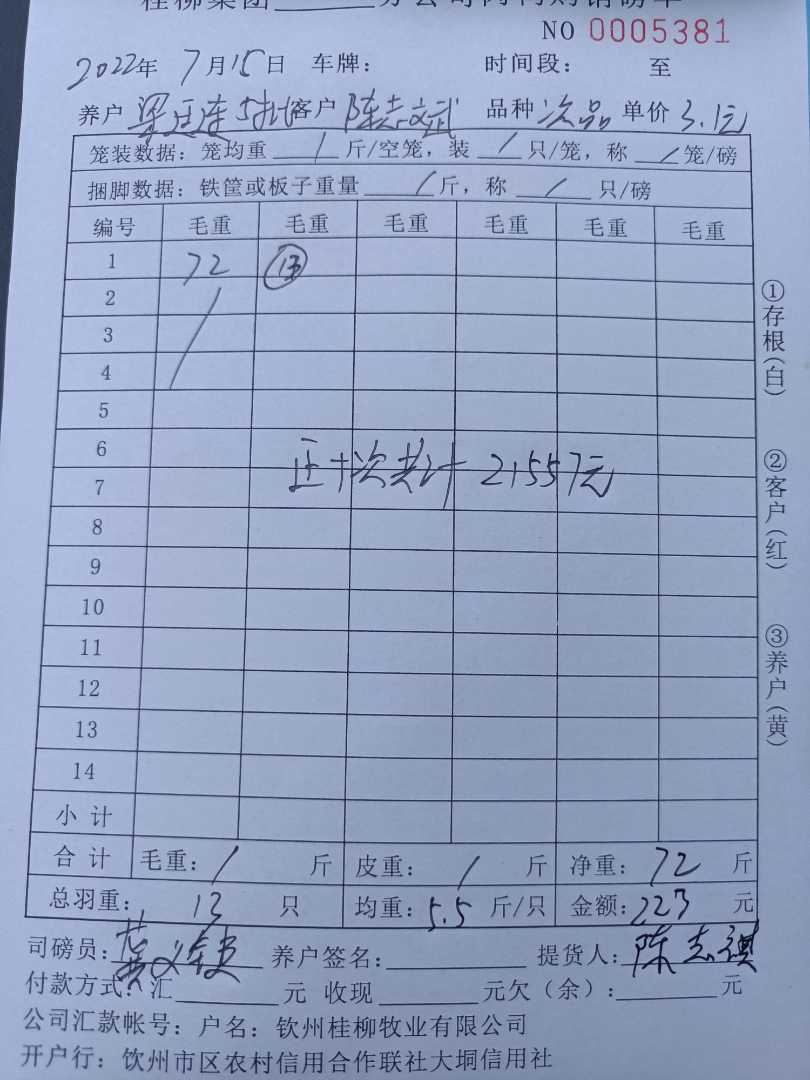 桂柳集团______分公司肉鸭购销磅单
NO 0005381
2022年 7月15日 车牌： 时间段： 至
养户 梁廷连5批 客户 陈志斌 品种 次品 单价 3.1元
笼装数据：笼均重 / 斤/空笼，装 / 只/笼，称 / 笼/磅
捆脚数据：铁筐或板子重量 / 斤，称 / 只/磅
编号 毛重 毛重 毛重 毛重 毛重 毛重
1 72 13
2
3
4
5
6
正十次共计 21557元
7
8
9
10
11
12
13
14
小计
合计 毛重： / 斤 皮重： / 斤 净重： 72 斤
总羽重： 13 只 均重： 5.5 斤/只 金额： 223 元
司磅员： 养户签名： 提货人： 陈志祺
付款方式：汇 元 收现 元欠（余）： 元
公司汇款帐号：户名：钦州桂柳牧业有限公司
开户行：钦州市区农村信用合作联社大垌信用社
①存根（白）
②客户（红）
③养户（黄）